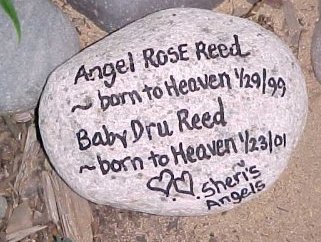 Angel ROSE Reed
~ born to Heaven 1/29/99
Baby Dru Reed
~ born to Heaven 1/23/01
♡♡ Sheri's
Angels